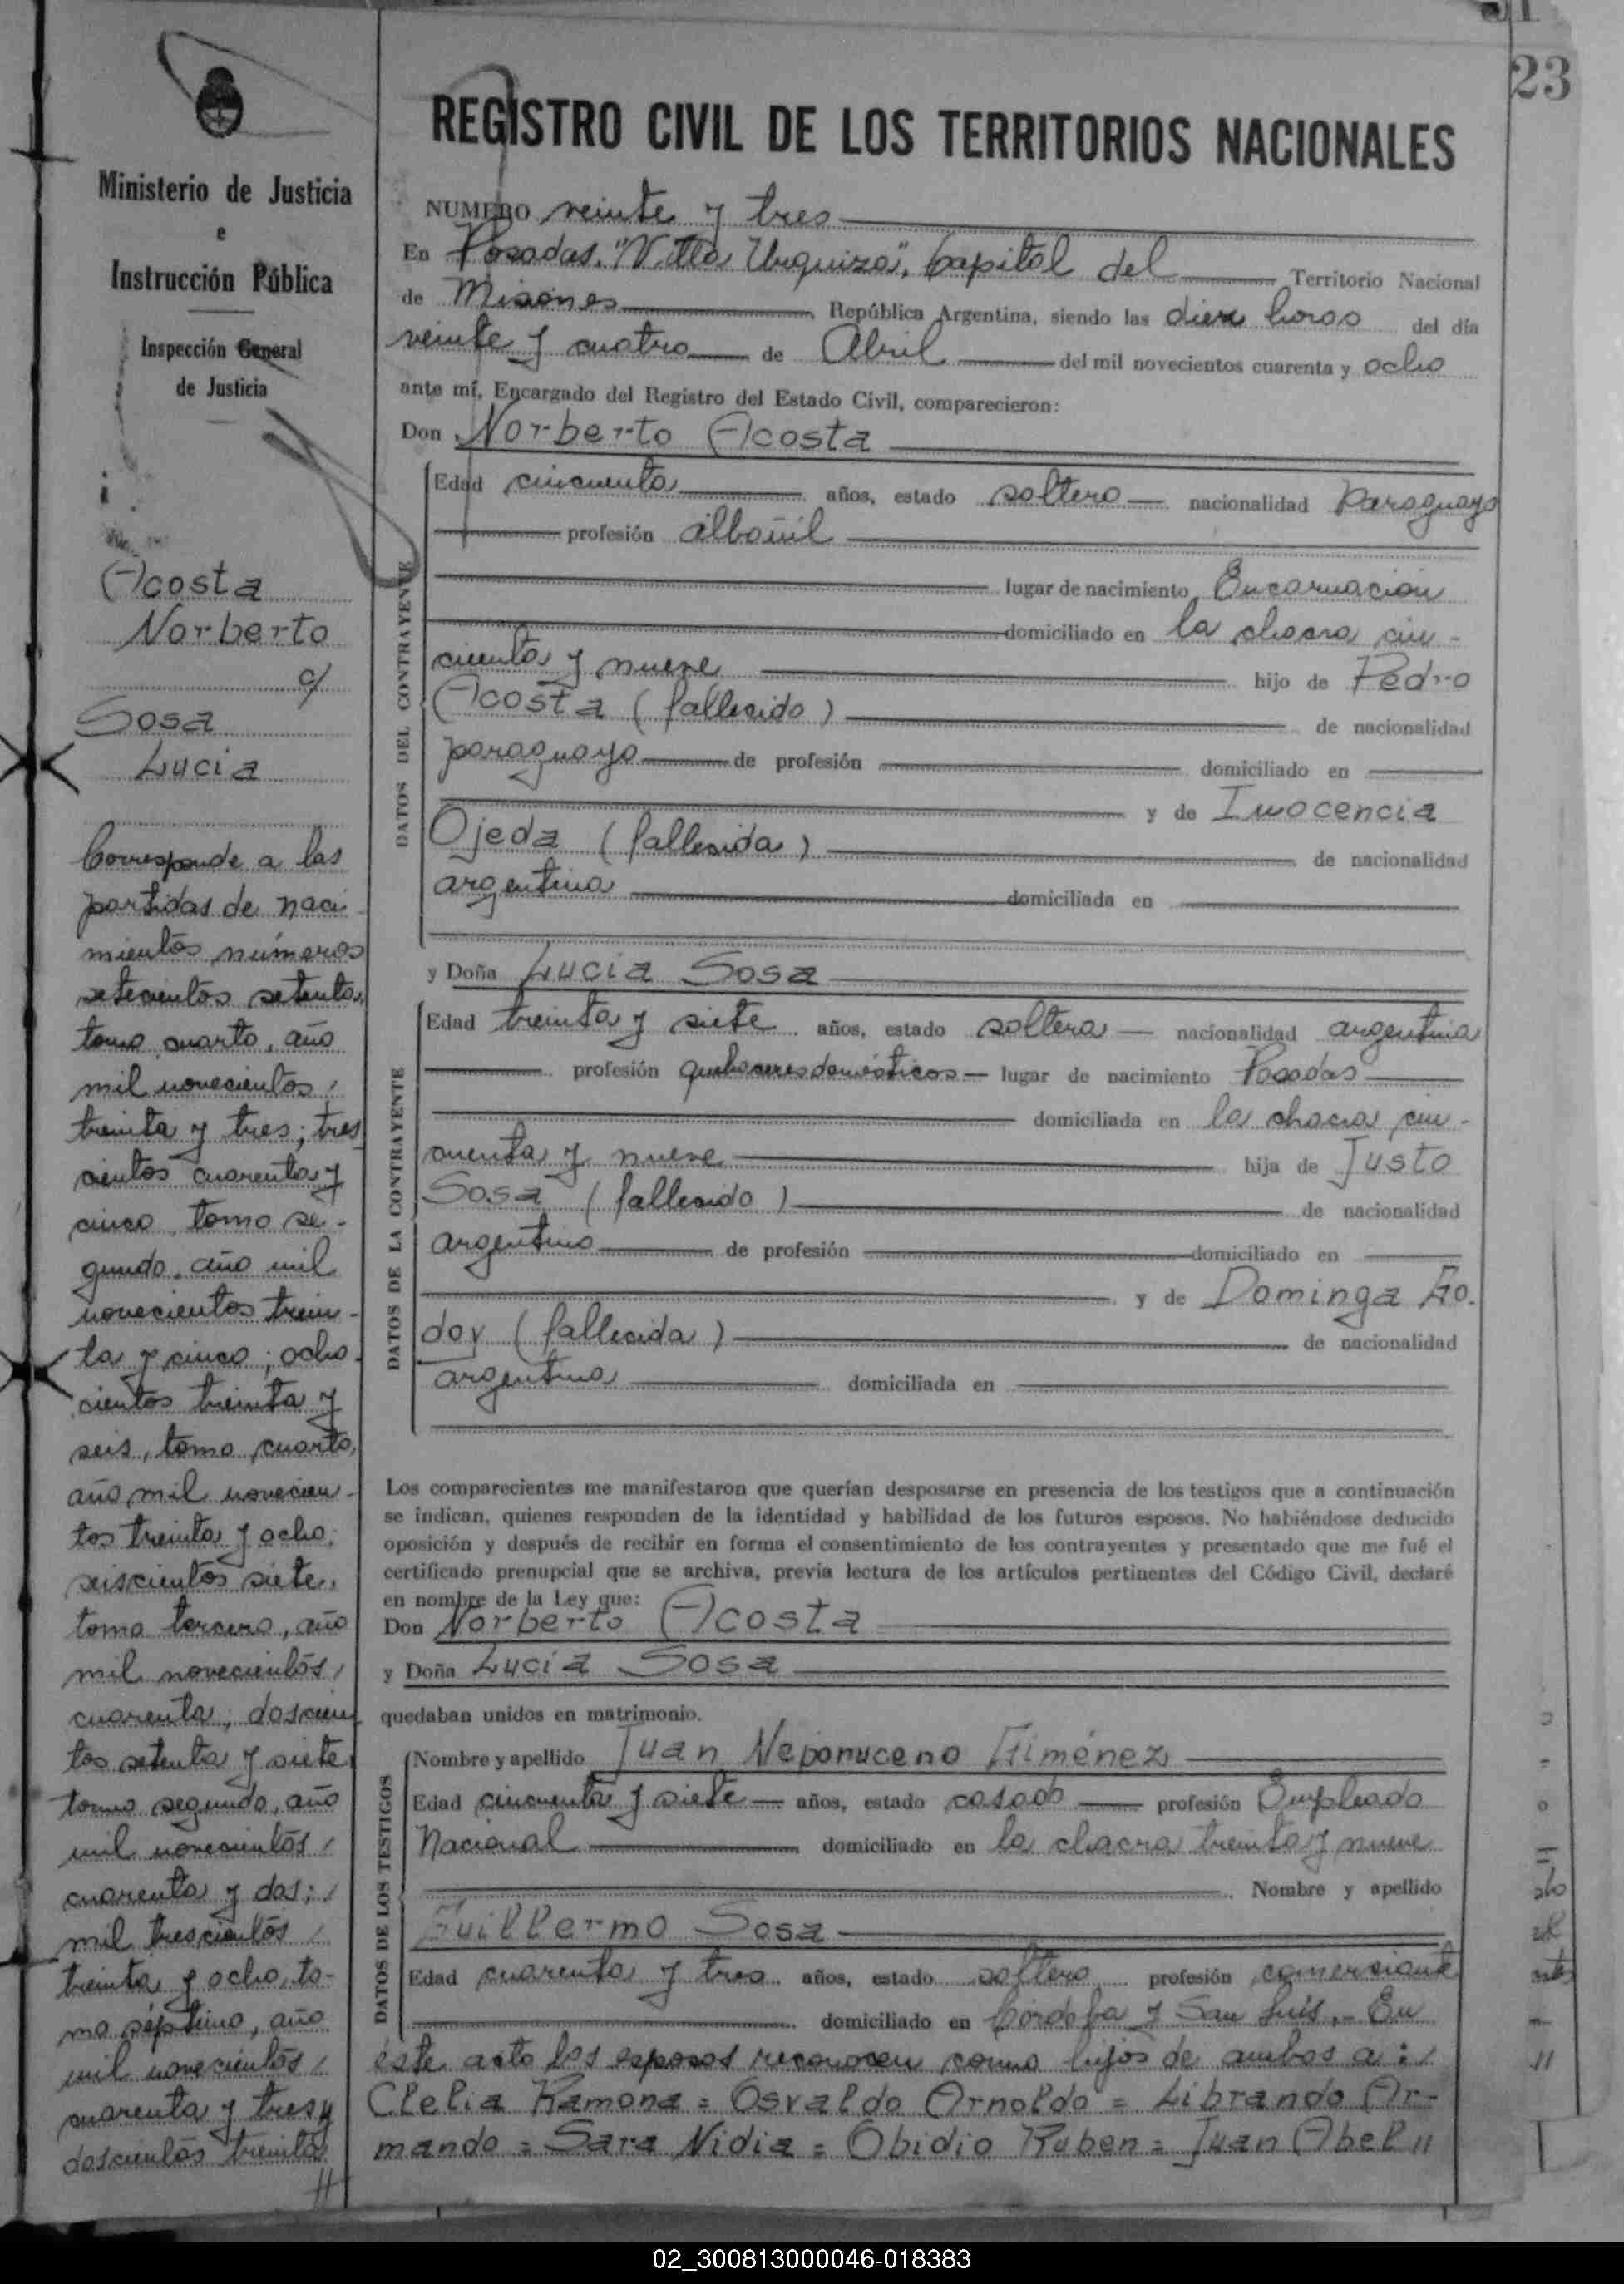 23
Ministerio de Justicia
e
Instrucción Pública
Inspección General
de Justicia
Acosta
Norberto
c/
Sosa
Lucia
Corresponde a las
partidas de naci
mientos números
setecientos setenta,
tomo cuarto, año
mil novecientos
treinta y tres; tres
cientos cuarenta y
cinco, tomo se-
gundo, año mil
novecientos trein-
ta y cinco; ocho
cientos treinta y
seis, tomo cuarto,
año mil novecien-
tos treinta y ocho;
seiscientos siete,
tomo tercero, año
mil novecientos
cuarenta; doscien
tos setenta y siete
tomo segundo, año
mil novecientos
cuarenta y dos;
mil trescientos
treinta y ocho, to-
mo séptimo, año
mil novecientos
cuarenta y tres y
doscientos treinta
//
REGISTRO CIVIL DE LOS TERRITORIOS NACIONALES
NUMERO veinte y tres
En Posadas, "Villa Urquiza", Capital del Territorio Nacional
de Misiones, República Argentina, siendo las diez horas del día
veinte y cuatro de Abril del mil novecientos cuarenta y ocho
ante mí, Encargado del Registro del Estado Civil, comparecieron:
Don Norberto Acosta
DATOS DEL CONTRAYENTE
Edad cincuenta años, estado soltero nacionalidad Paraguayo
profesión albañil
lugar de nacimiento Encarnación
domiciliado en la chacra cin-
cuenta y nueve hijo de Pedro
Acosta (fallecido) de nacionalidad
paraguayo de profesión domiciliado en
y de Inocencia
Ojeda (fallecida) de nacionalidad
argentina domiciliada en
y Doña Lucia Sosa
DATOS DE LA CONTRAYENTE
Edad treinta y siete años, estado soltera nacionalidad argentina
profesión quehaceres domésticos lugar de nacimiento Posadas
domiciliada en la chacra cin-
cuenta y nueve hija de Justo
Sosa (fallecido) de nacionalidad
argentino de profesión domiciliado en
y de Dominga Go.
doy (fallecida) de nacionalidad
argentina domiciliada en
Los comparecientes me manifestaron que querían desposarse en presencia de los testigos que a continuación
se indican, quienes responden de la identidad y habilidad de los futuros esposos. No habiéndose deducido
oposición y después de recibir en forma el consentimiento de los contrayentes y presentado que me fué el
certificado prenupcial que se archiva, previa lectura de los artículos pertinentes del Código Civil, declaré
en nombre de la Ley que:
Don Norberto Acosta
y Doña Lucia Sosa
quedaban unidos en matrimonio.
DATOS DE LOS TESTIGOS
Nombre y apellido Juan Neponuceno Giménez
Edad cincuenta y siete años, estado casado profesión Empleado
Nacional domiciliado en la chacra treinta y nueve
Nombre y apellido
Guillermo Sosa
Edad cuarenta y tres años, estado soltero profesión comerciante
domiciliado en Córdoba y San Luis.- En
este acto los esposos reconocen como hijos de ambos a:
Clelia Ramona = Osvaldo Arnoldo = Librando Ar-
mando = Sara Nidia = Obidio Ruben = Juan Abel //
02_300813000046-018383